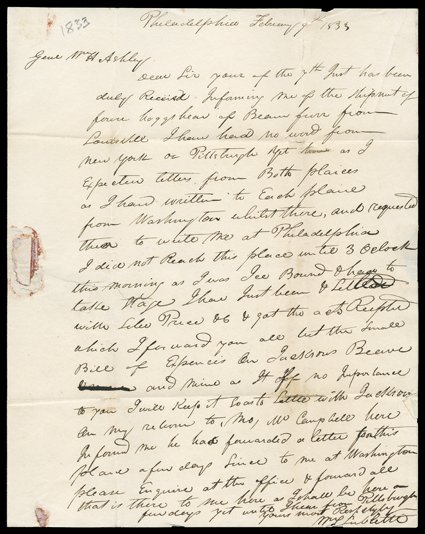 1833
Philadelphia February 9th 1833
Genl Wm H Ashley
Dear Sir your of the 7th Inst has been
duly Receivd Informing me of the shipment of
foure hoggshead of Beaver furr from
Louisville I have heard no word from
New York or Pittsburgh as I
Expected letters from Both plaices
as I have written to Each plaice
from Washington whilst there, and requested
them to write me at Philadelphia
I did not Reach this place until 3 Oclock
this morning as I was Ice Bound & had to
take Stage I have Just been & Settled
with Siter Price & Co & got the acts Receipted
which I forward you all but the Small
Bill of Expences On Jacksons Beaver
and mine as It is of no Importance
to you I will Keep it to Settle with Jackson
On my return to Mo, Mr Campbell here
Informd me he had forwarded a letter to this
place a few days Since to me at Washington
please Enquire at the office & forward all
that is there to me here as I shall be here a
few days yet until I hear from Pittsburgh
yours most Respctfly
Wm L Sublette